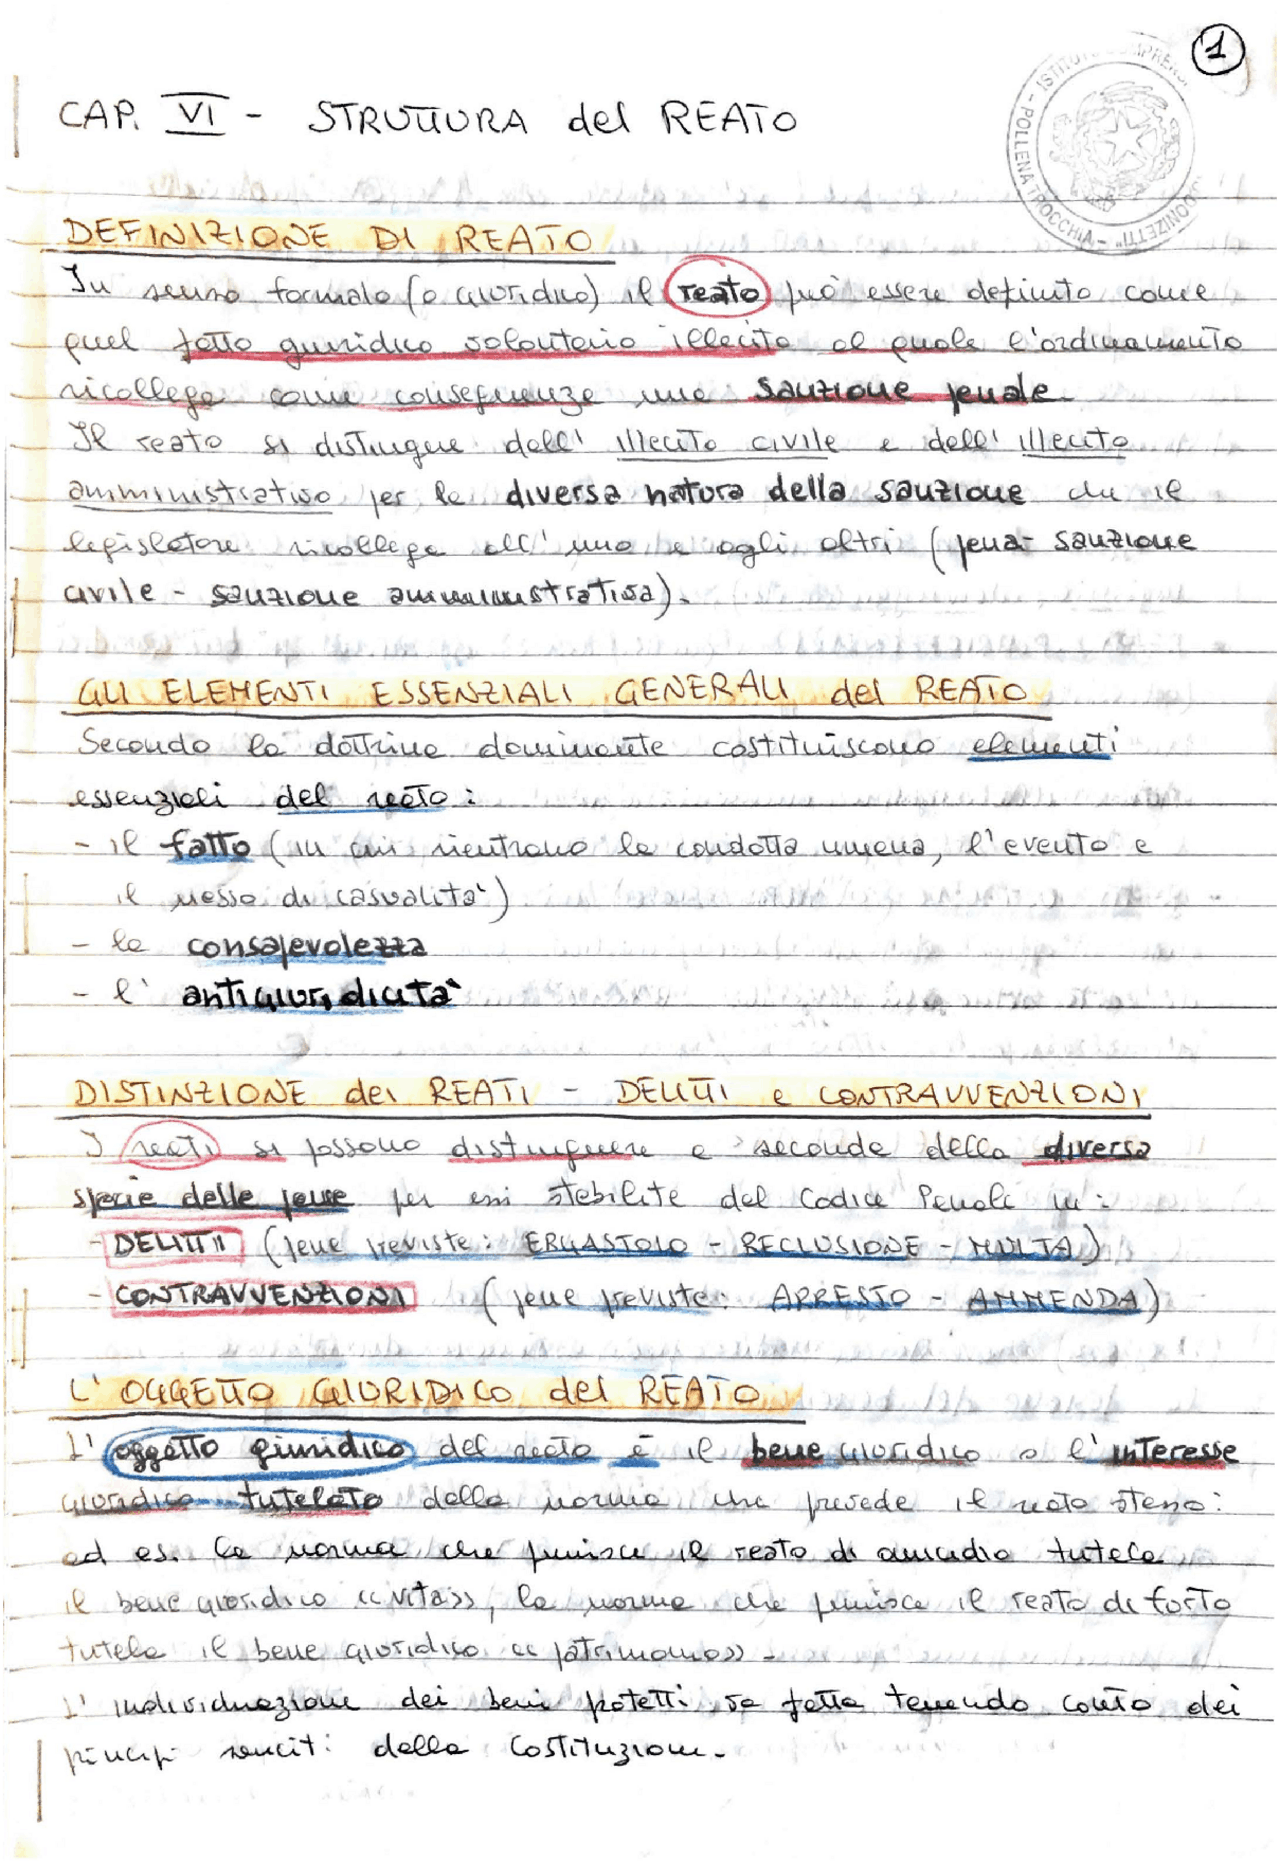 1
ISTITUTO COMPRENS
POLLENA TROCCHIA - "DONIZETTI"
CAP. VI - STRUTTURA del REATO
DEFINIZIONE DI REATO
In senso formale (o giuridico) il reato può essere definito come
quel fatto giuridico volontario illecito al quale l'ordinamento
ricollega come conseguenza una sanzione penale.
Il reato si distingue dall' illecito civile e dall' illecito
amministrativo per la diversa natura della sanzione che il
legislatore ricollega all' uno e agli altri (pena - sanzione
civile - sanzione amministrativa).
GLI ELEMENTI ESSENZIALI GENERALI del REATO
Secondo la dottrina dominante costituiscono elementi
essenziali del reato:
- il fatto (in cui rientrano la condotta umana, l'evento e
il nesso di casualità)
- la consapevolezza
- l' antigiuridicità
DISTINZIONE dei REATI - DELITTI e CONTRAVVENZIONI
I reati si possono distinguere a seconda della diversa
specie delle pene per essi stabilite dal Codice Penale in:
- DELITTI (pene previste: ERGASTOLO - RECLUSIONE - MULTA)
- CONTRAVVENZIONI (pene previste: ARRESTO - AMMENDA)
L' OGGETTO GIURIDICO del REATO
L' oggetto giuridico del reato è il bene giuridico o l' interesse
giuridico tutelato dalla norma che prevede il reato stesso:
ad es. la norma che punisce il reato di omicidio tutela
il bene giuridico «vita», la norma che punisce il reato di furto
tutela il bene giuridico «patrimonio».
L' individuazione dei beni protetti va fatta tenendo conto dei
principi sanciti dalla Costituzione.